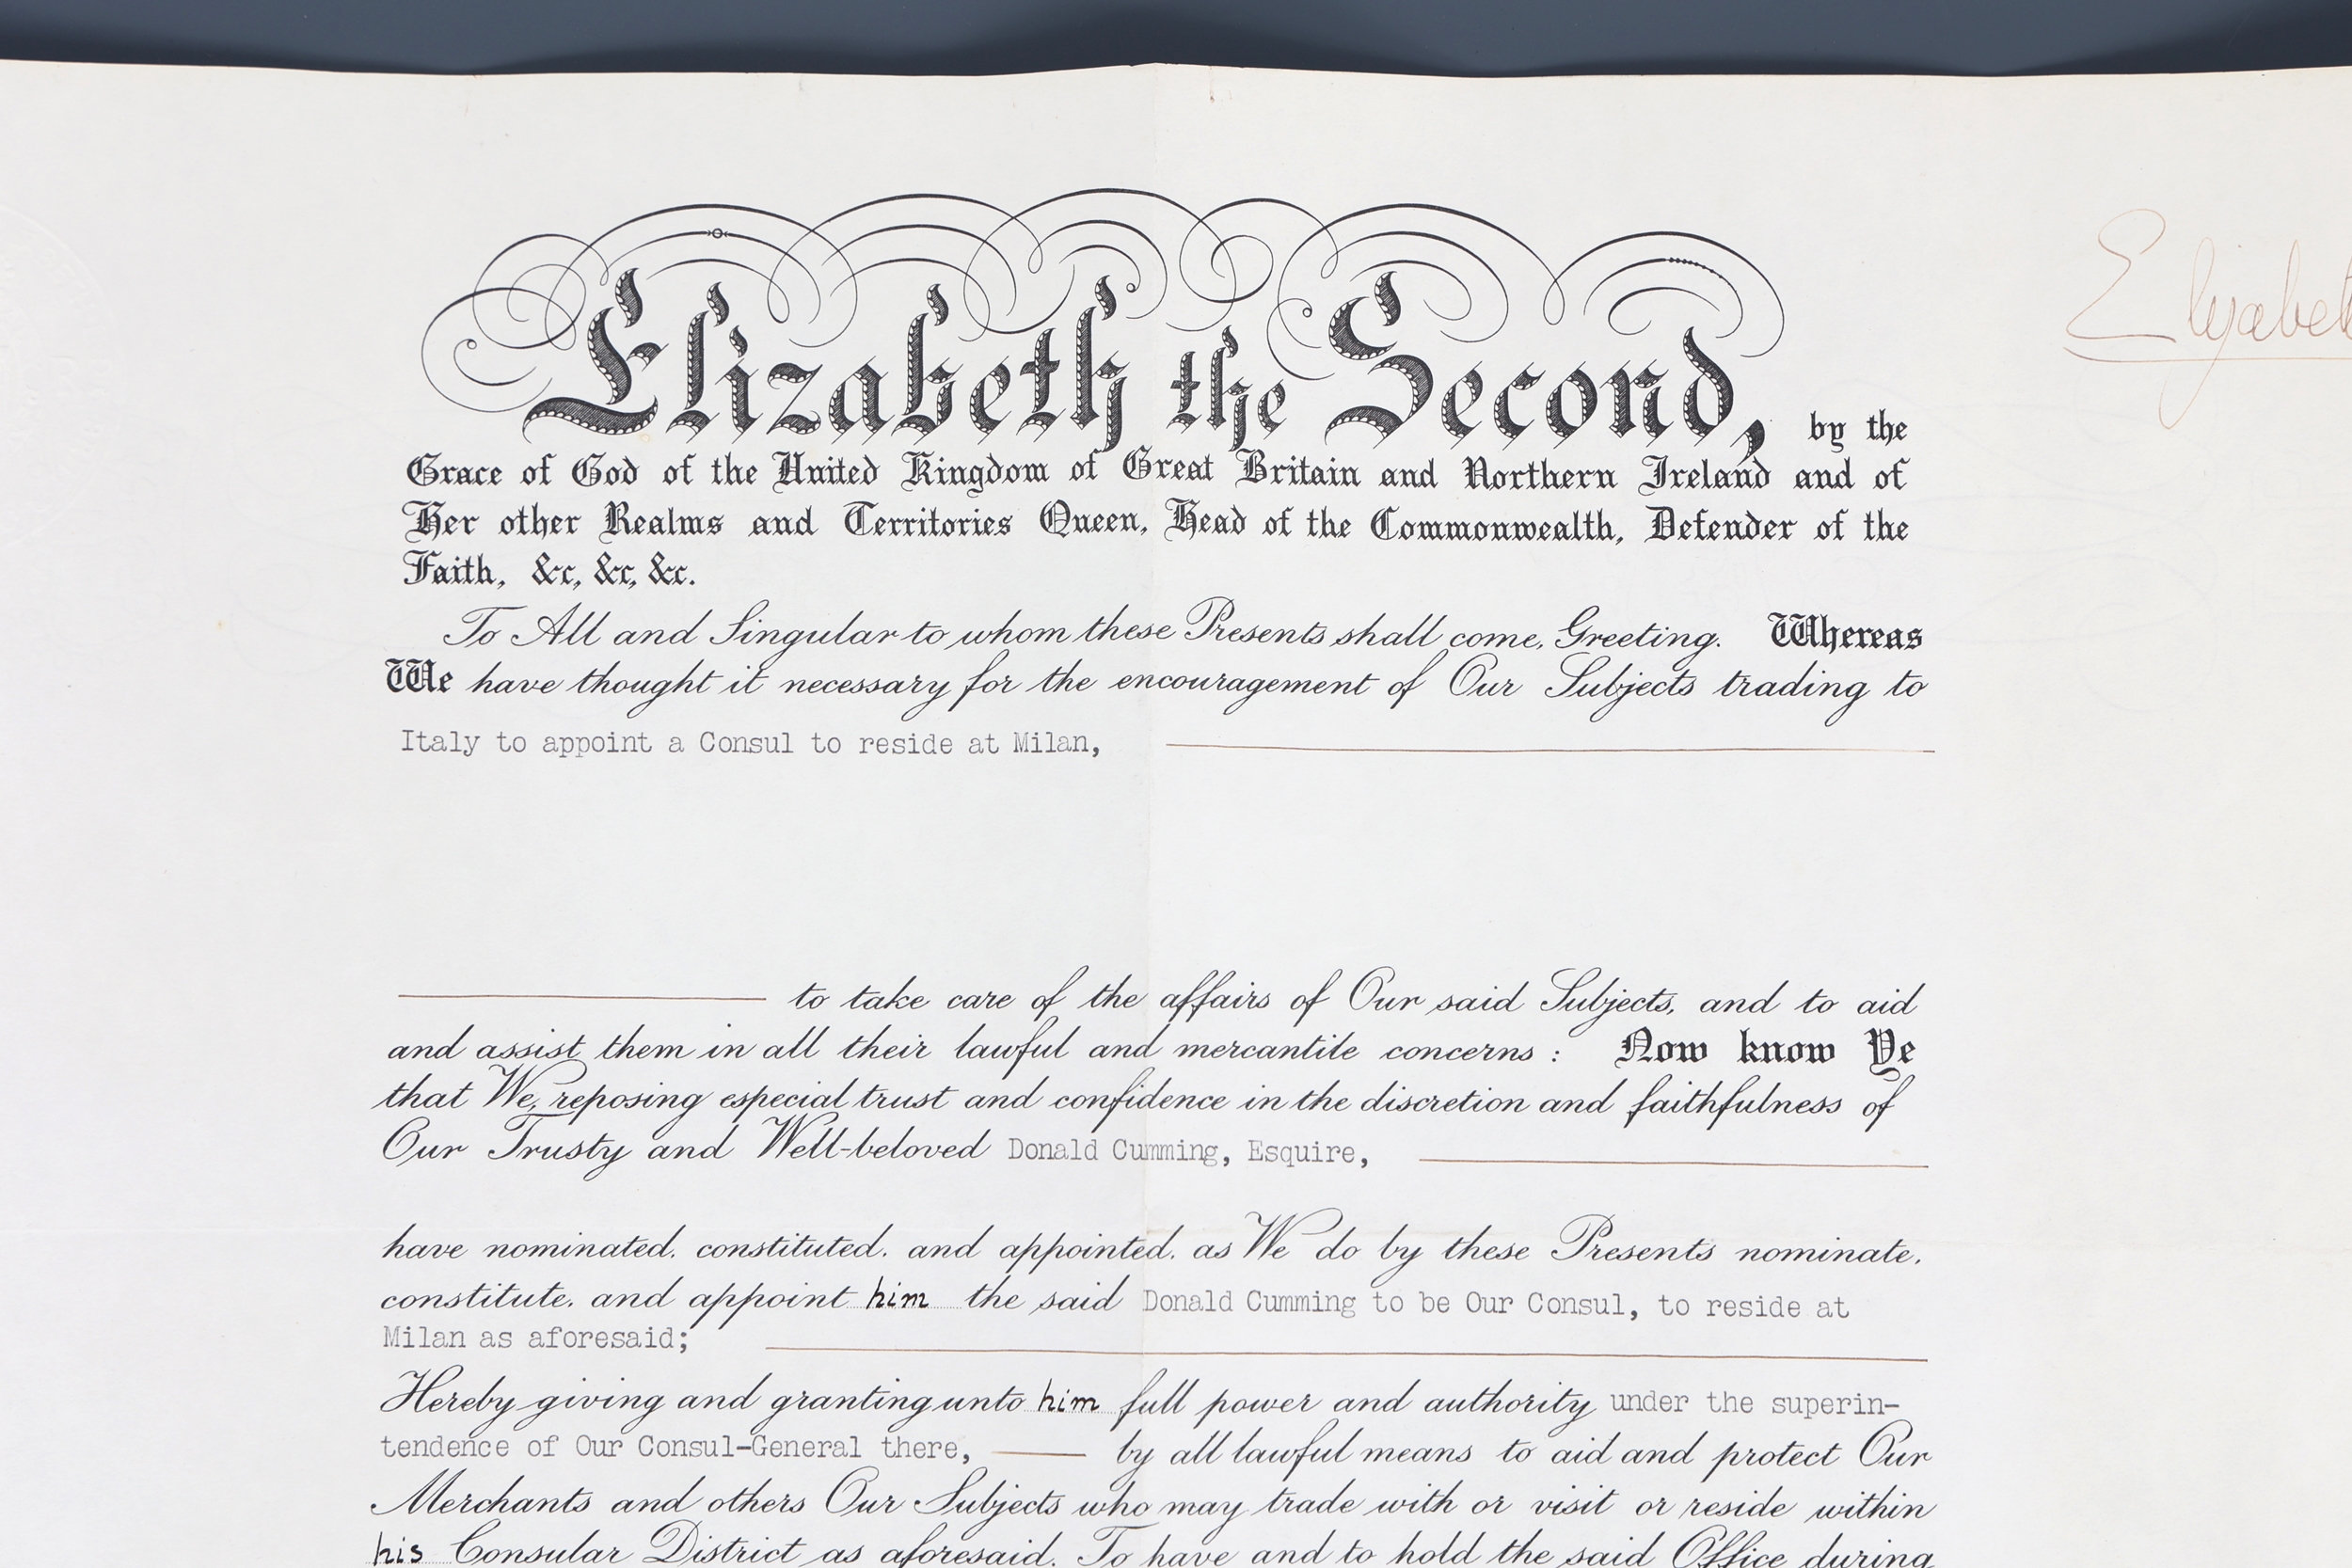 Elizabeth the Second, by the
Grace of God of the United Kingdom of Great Britain and Northern Ireland and of
Her other Realms and Territories Queen, Head of the Commonwealth, Defender of the
Faith, &c, &c, &c.
To All and Singular to whom these Presents shall come, Greeting. Whereas
We have thought it necessary for the encouragement of Our Subjects trading to
Italy to appoint a Consul to reside at Milan,
to take care of the affairs of Our said Subjects, and to aid
and assist them in all their lawful and mercantile concerns : Now know Ye
that We, reposing especial trust and confidence in the discretion and faithfulness of
Our Trusty and Well-beloved Donald Cumming, Esquire,
have nominated, constituted, and appointed, as We do by these Presents nominate,
constitute, and appoint him the said Donald Cumming to be Our Consul, to reside at
Milan as aforesaid;
Hereby giving and granting unto him full power and authority under the superin-
tendence of Our Consul-General there, by all lawful means to aid and protect Our
Merchants and others Our Subjects who may trade with or visit or reside within
his Consular District as aforesaid. To have and to hold the said Office during
Elizabet